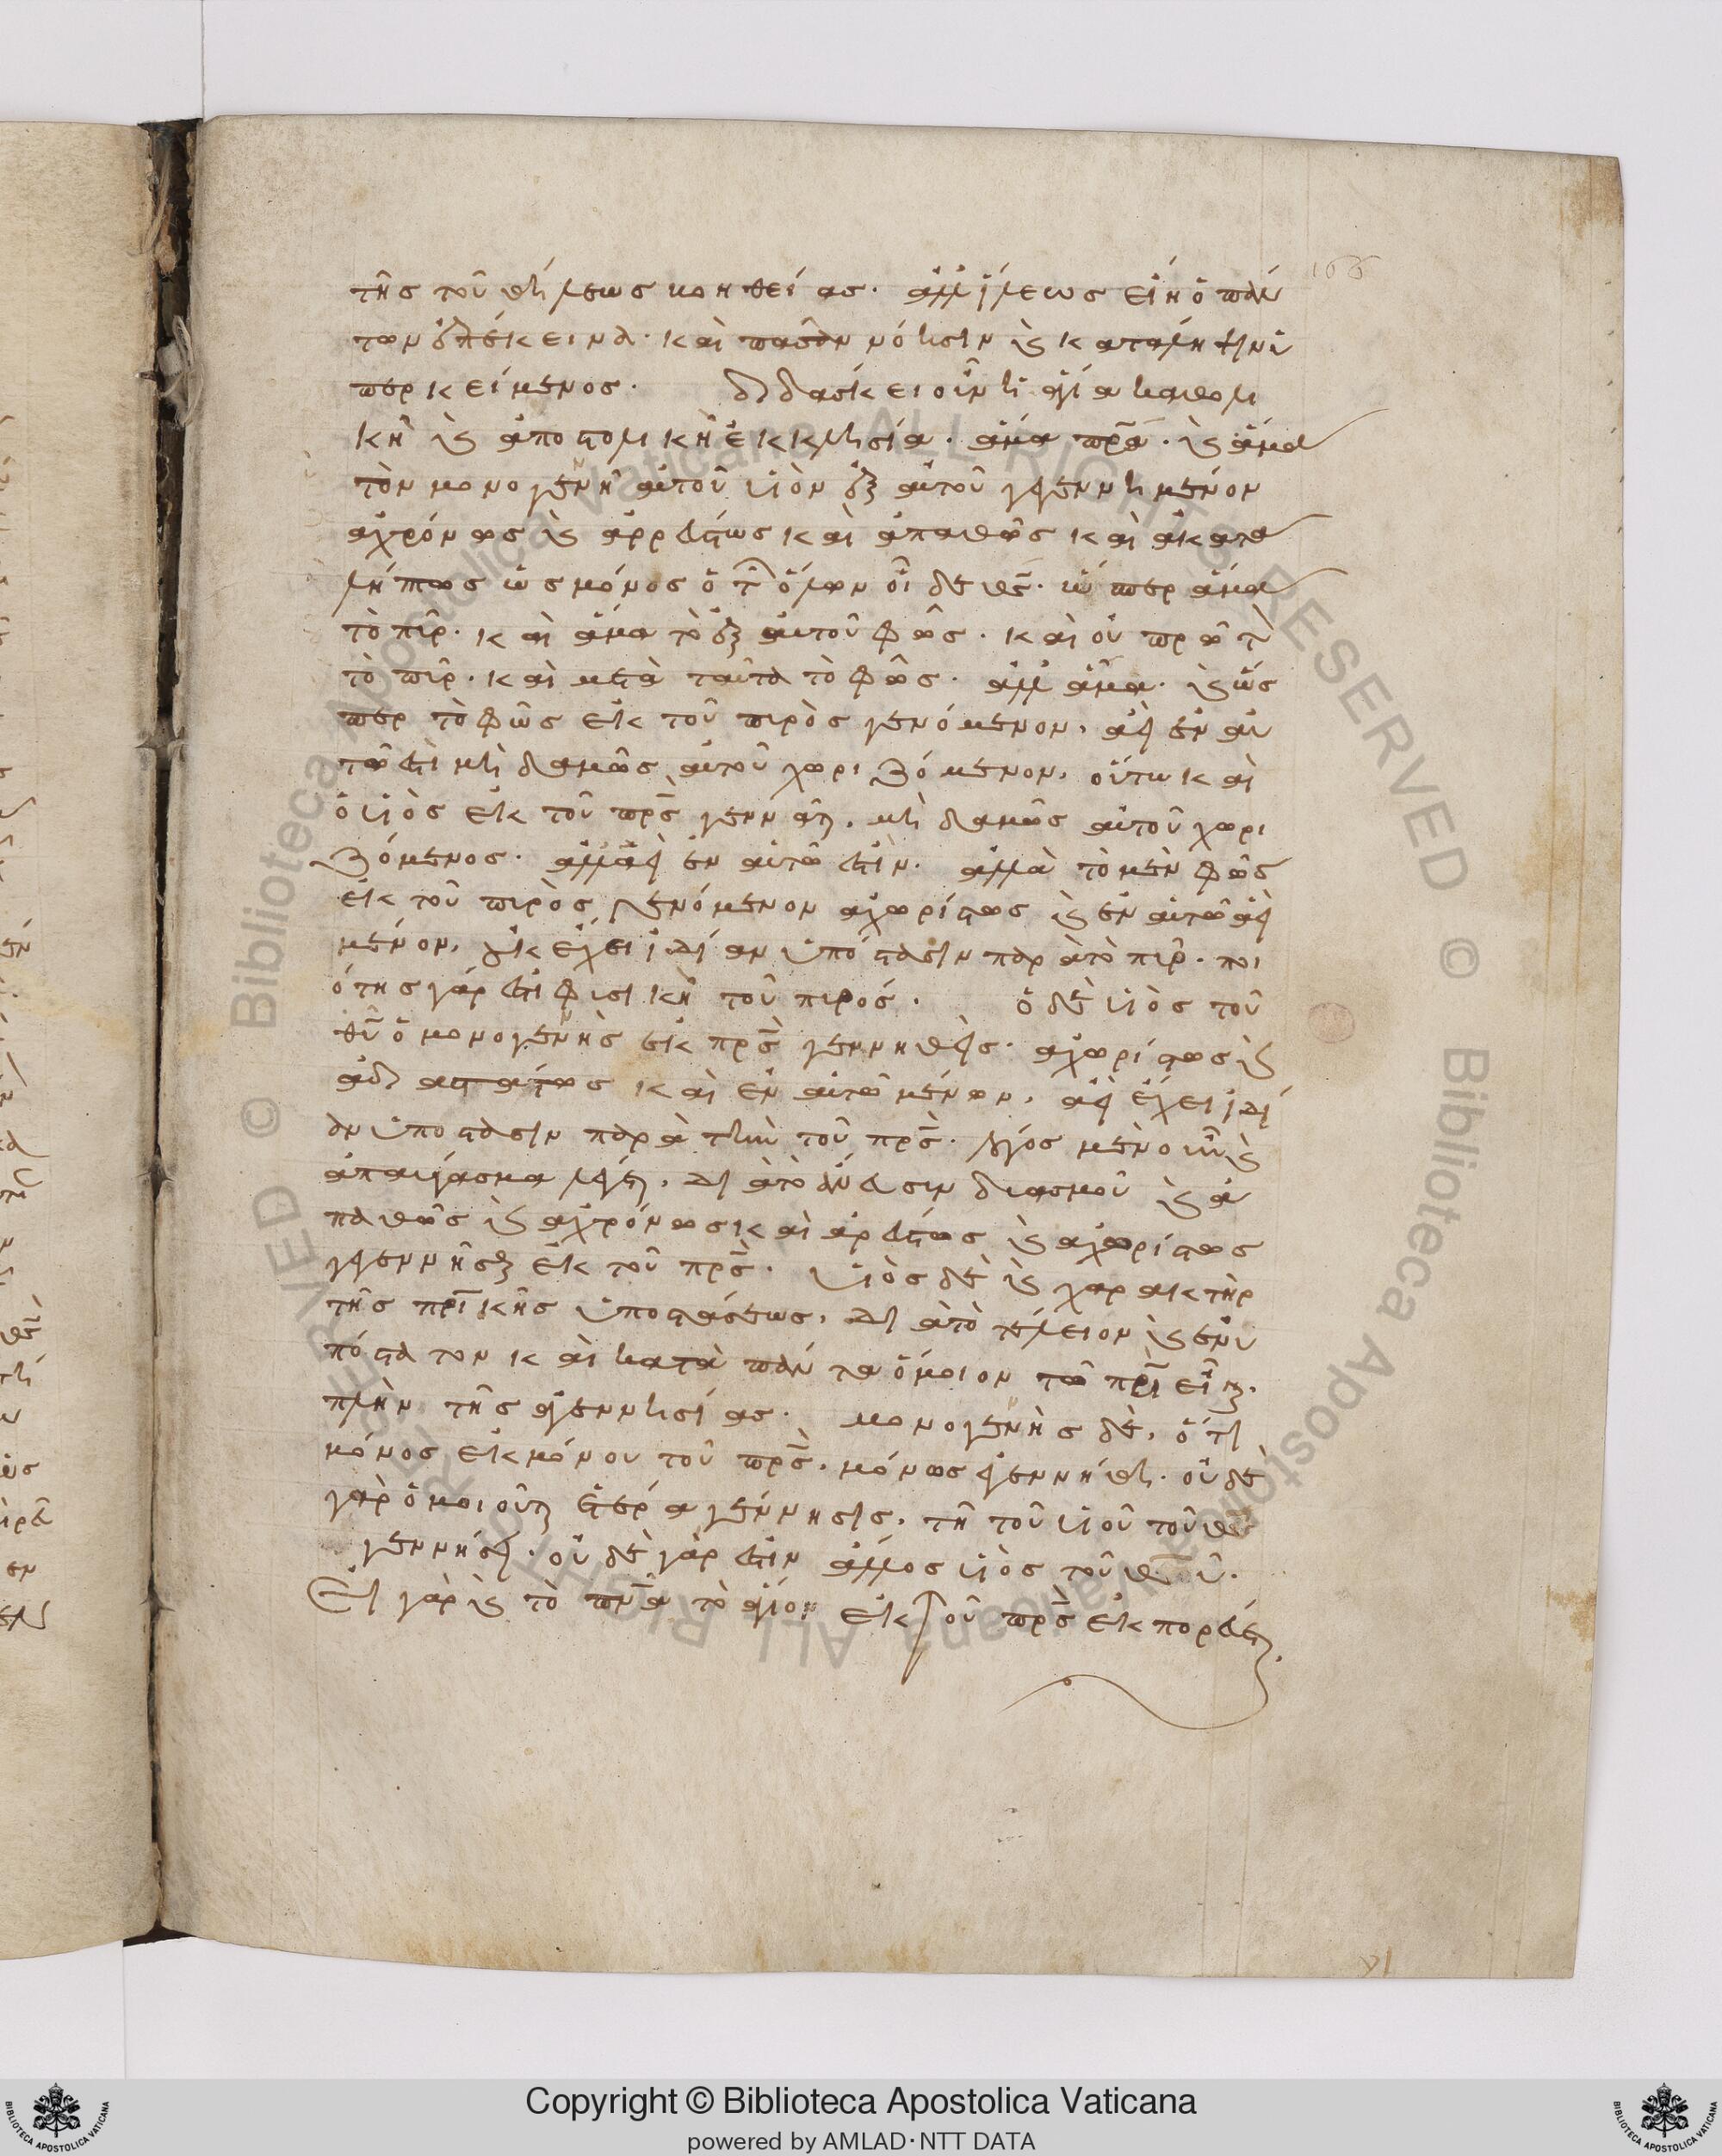 166
τῆς τοῦ θελήσεως βοηθείας. ἀλλ' ἵλεως εἴη ὁ πάν
των ἐπέκεινα. καὶ πᾶσαν νόησιν καὶ κατάληψιν ὑ
περκείμενος. διδάσκει οὖν ἡ ἁγία καθολι
κὴ καὶ ἀποστολικὴ ἐκκλησία. ἅμα πρα. καὶ ἅμα
τὸν μονογεννῆ αὐτοῦ υἱὸν ἐξ αὐτοῦ γεγεννημένον
ἀχρόνως καὶ ἀρρεύστως καὶ ἀπαθῶς καὶ ἀκατα
λήπτως ὡς μόνος ὁ τῶν ὅλων οἶδε θς. ὥσπερ ἅμα
τὸ πῦρ. καὶ ἅμα τὸ ἐξ αὐτοῦ φῶς. καὶ οὐ πρῶτον
τὸ πῦρ. καὶ μετὰ ταῦτα τὸ φῶς. ἀλλ' ἅμα. καὶ ὥσ
περ τὸ φῶς ἐκ τοῦ πυρὸς γενόμενον, ἀεὶ ἐν αὐ
τῷ ἐστὶ μηδαμῶς αὐτοῦ χωριζόμενον, οὕτω καὶ
ὁ υἱὸς ἐκ τοῦ πρς γεννᾶται, μηδαμῶς αὐτοῦ χωρι
ζόμενος. ἀλλ' ἀεὶ ἐν αὐτῷ ἐστίν. ἀλλὰ τὸ μὲν φῶς
ἐκ τοῦ πυρὸς γενόμενον ἀχωρίστως καὶ ἐν αὐτῷ ἀεὶ
μένον, οὐκ ἔχει ἰδίαν ὑπόστασιν παρὰ τὸ πῦρ. ποι
ότης γάρ ἐστι φυσικὴ τοῦ πυρός. ὁ δὲ υἱὸς τοῦ
θυ ὁ μονογεννὴς ἐκ πρς γεννηθεὶς. ἀχωρίστως καὶ
ἀδιαστάτως καὶ ἐν αὐτῷ μένων, ἀεὶ ἔχει ἰδί
αν ὑπόστασιν παρὰ τὴν τοῦ πρς. λόγος μὲν οὖν καὶ
ἀπαύγασμα λέγεται, διὰ τὸ ἄνευ συνδυασμοῦ καὶ ἀ
παθῶς καὶ ἀχρόνως καὶ ἀρεύστως καὶ ἀχωρίστως
γεγεννῆσθαι ἐκ τοῦ πρς. υἱὸς δὲ καὶ χαρακτὴρ
τῆς πρικῆς ὑποστάσεως, διὰ τὸ τέλειον καὶ ἐνυ
πόστατον καὶ κατὰ πάντα ὅμοιον τῷ πρι εἶναι.
πλὴν τῆς ἀγεννησίας. μονογεννὴς δὲ, ὅτι
μόνος ἐκ μόνου τοῦ πρς. μόνως ἐγεννήθη. οὐδὲ
γὰρ ὁμοιοῦται ἑτέρα γέννησις, τῇ τοῦ υἱοῦ τοῦ θυ
γεννήσει. οὐδὲ γάρ ἐστιν ἄλλος υἱὸς τοῦ θυ.
Εἰ γὰρ καὶ τὸ πνα τὸ ἅγιον ἐκ τοῦ πρς ἐκπορεύεται,
Copyright © Biblioteca Apostolica Vaticana
powered by AMLAD·NTT DATA